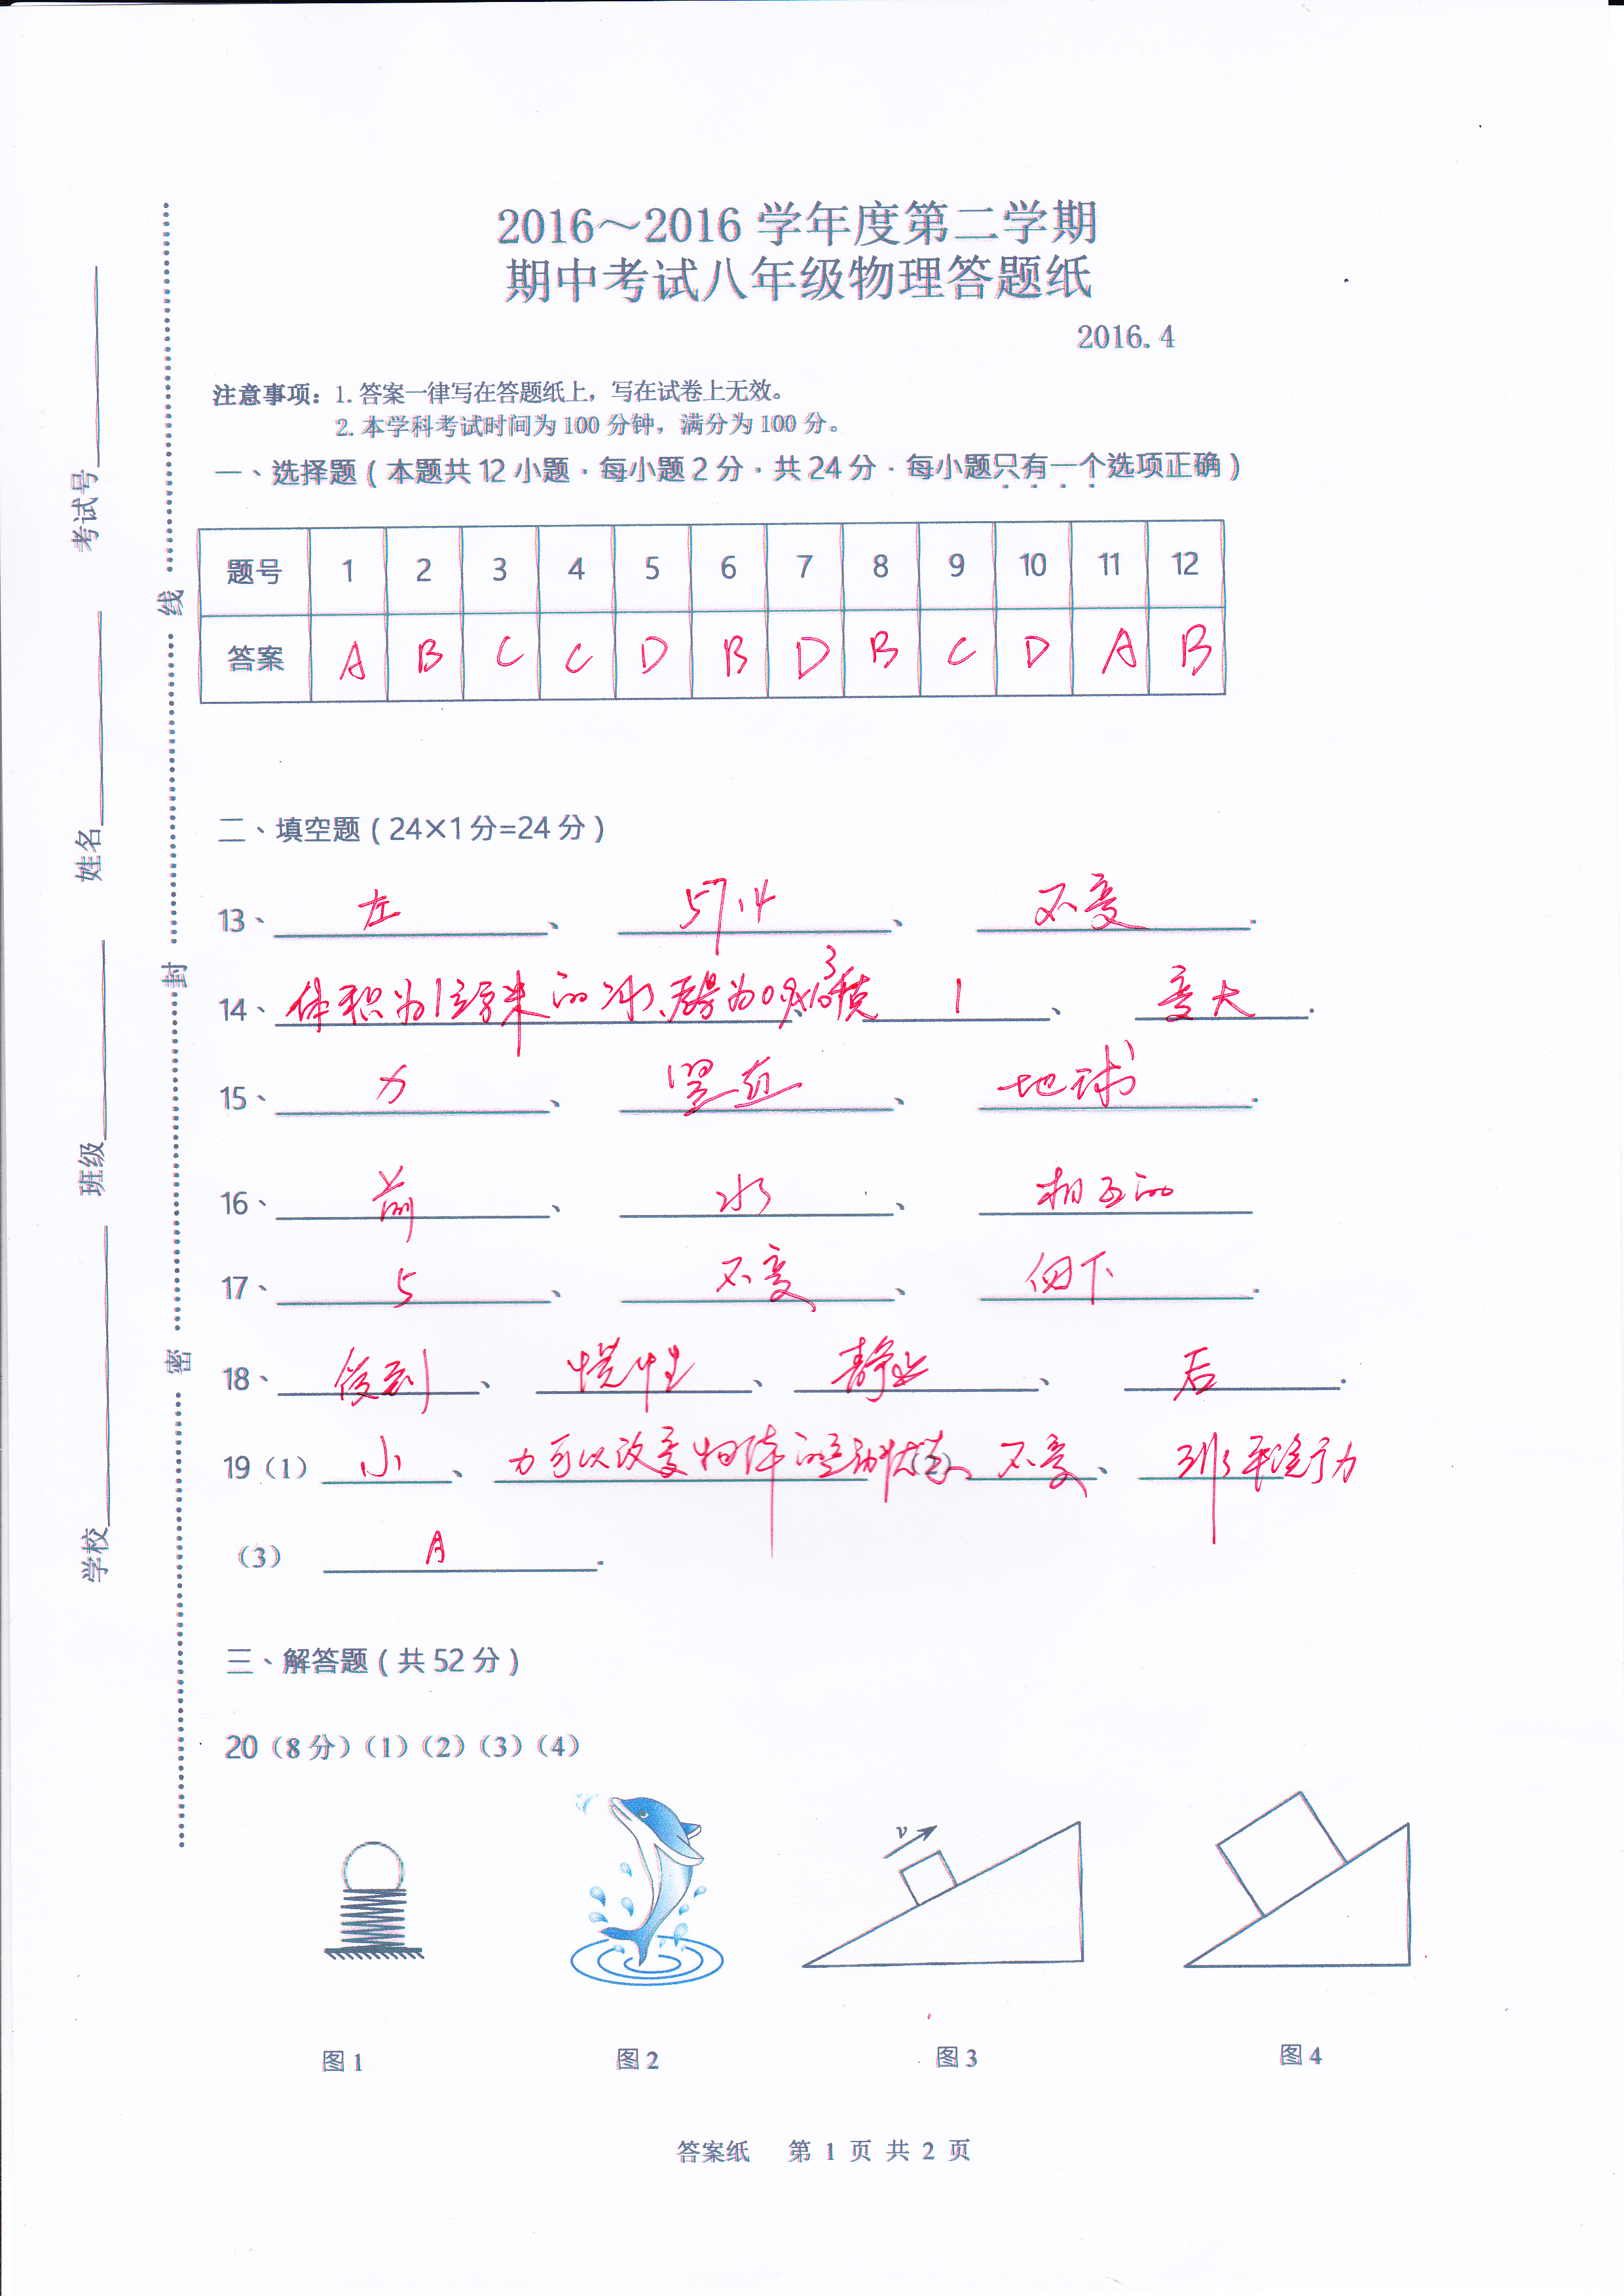 2016～2016 学年度第二学期
期中考试八年级物理答题纸
2016.4
注意事项：1. 答案一律写在答题纸上，写在试卷上无效。
2. 本学科考试时间为 100 分钟，满分为 100 分。
一、选择题（本题共 12 小题，每小题 2 分，共 24 分．每小题只有一个选项正确）
题号 1 2 3 4 5 6 7 8 9 10 11 12
答案 A B C C D B D B C D A B
二、填空题（24×1 分=24 分）
13、 左 、 57.14 、 不变 .
14、 体积为1立方米的冰、质量为0.9×10³千克 1 、 变大 .
15、 力 、 竖直 、 地球 .
16、 前 、 水 、 相互的
17、 5 、 不变 、 向下 .
18、 惯性 、 静止 、 后 .
19（1） 小 、 力可以改变物体的运动状态 (2) 不变 、 非平衡力
（3） A .
三、解答题（共 52 分）
20（8 分）（1）（2）（3）（4）
v
图 1 图 2 图 3 图 4
答案纸 第 1 页 共 2 页
考试号
姓名
班级
学校
线
封
密